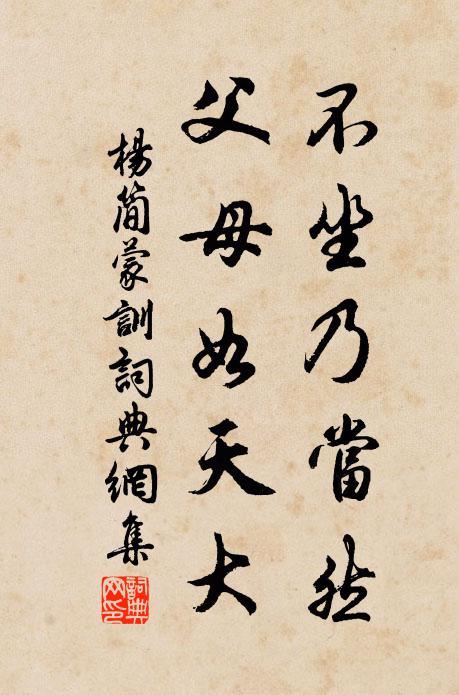 不坐乃當然
父母如天大
楊簡蒙訓詞典網集
詞典網印